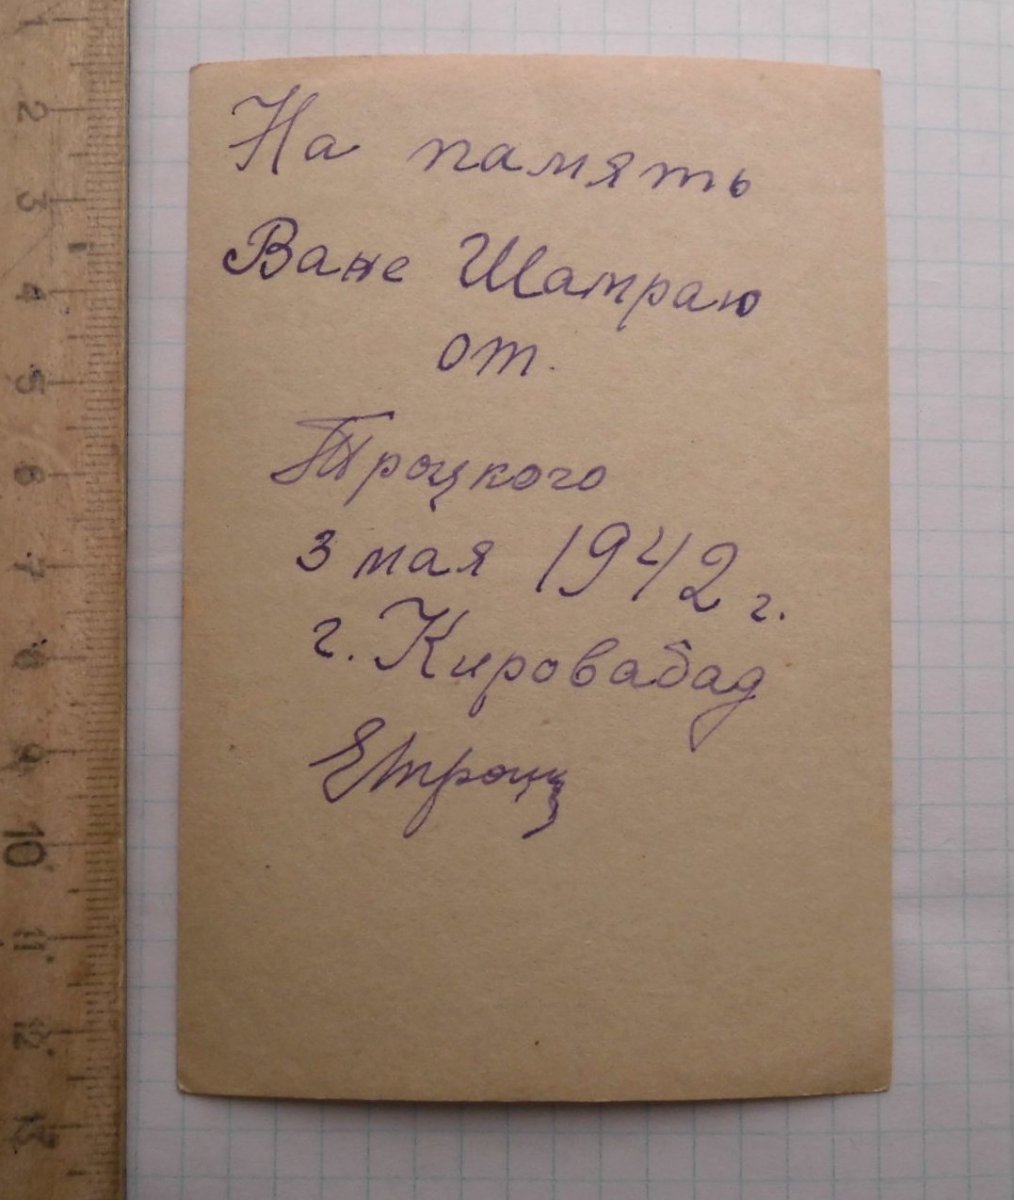 На память
Ване Шамраю
от.
Троцкого
3 мая 1942 г.
г. Кировабад
ЕТроц
1
2
3
4
5
6
7
8
9
10
11
12
13